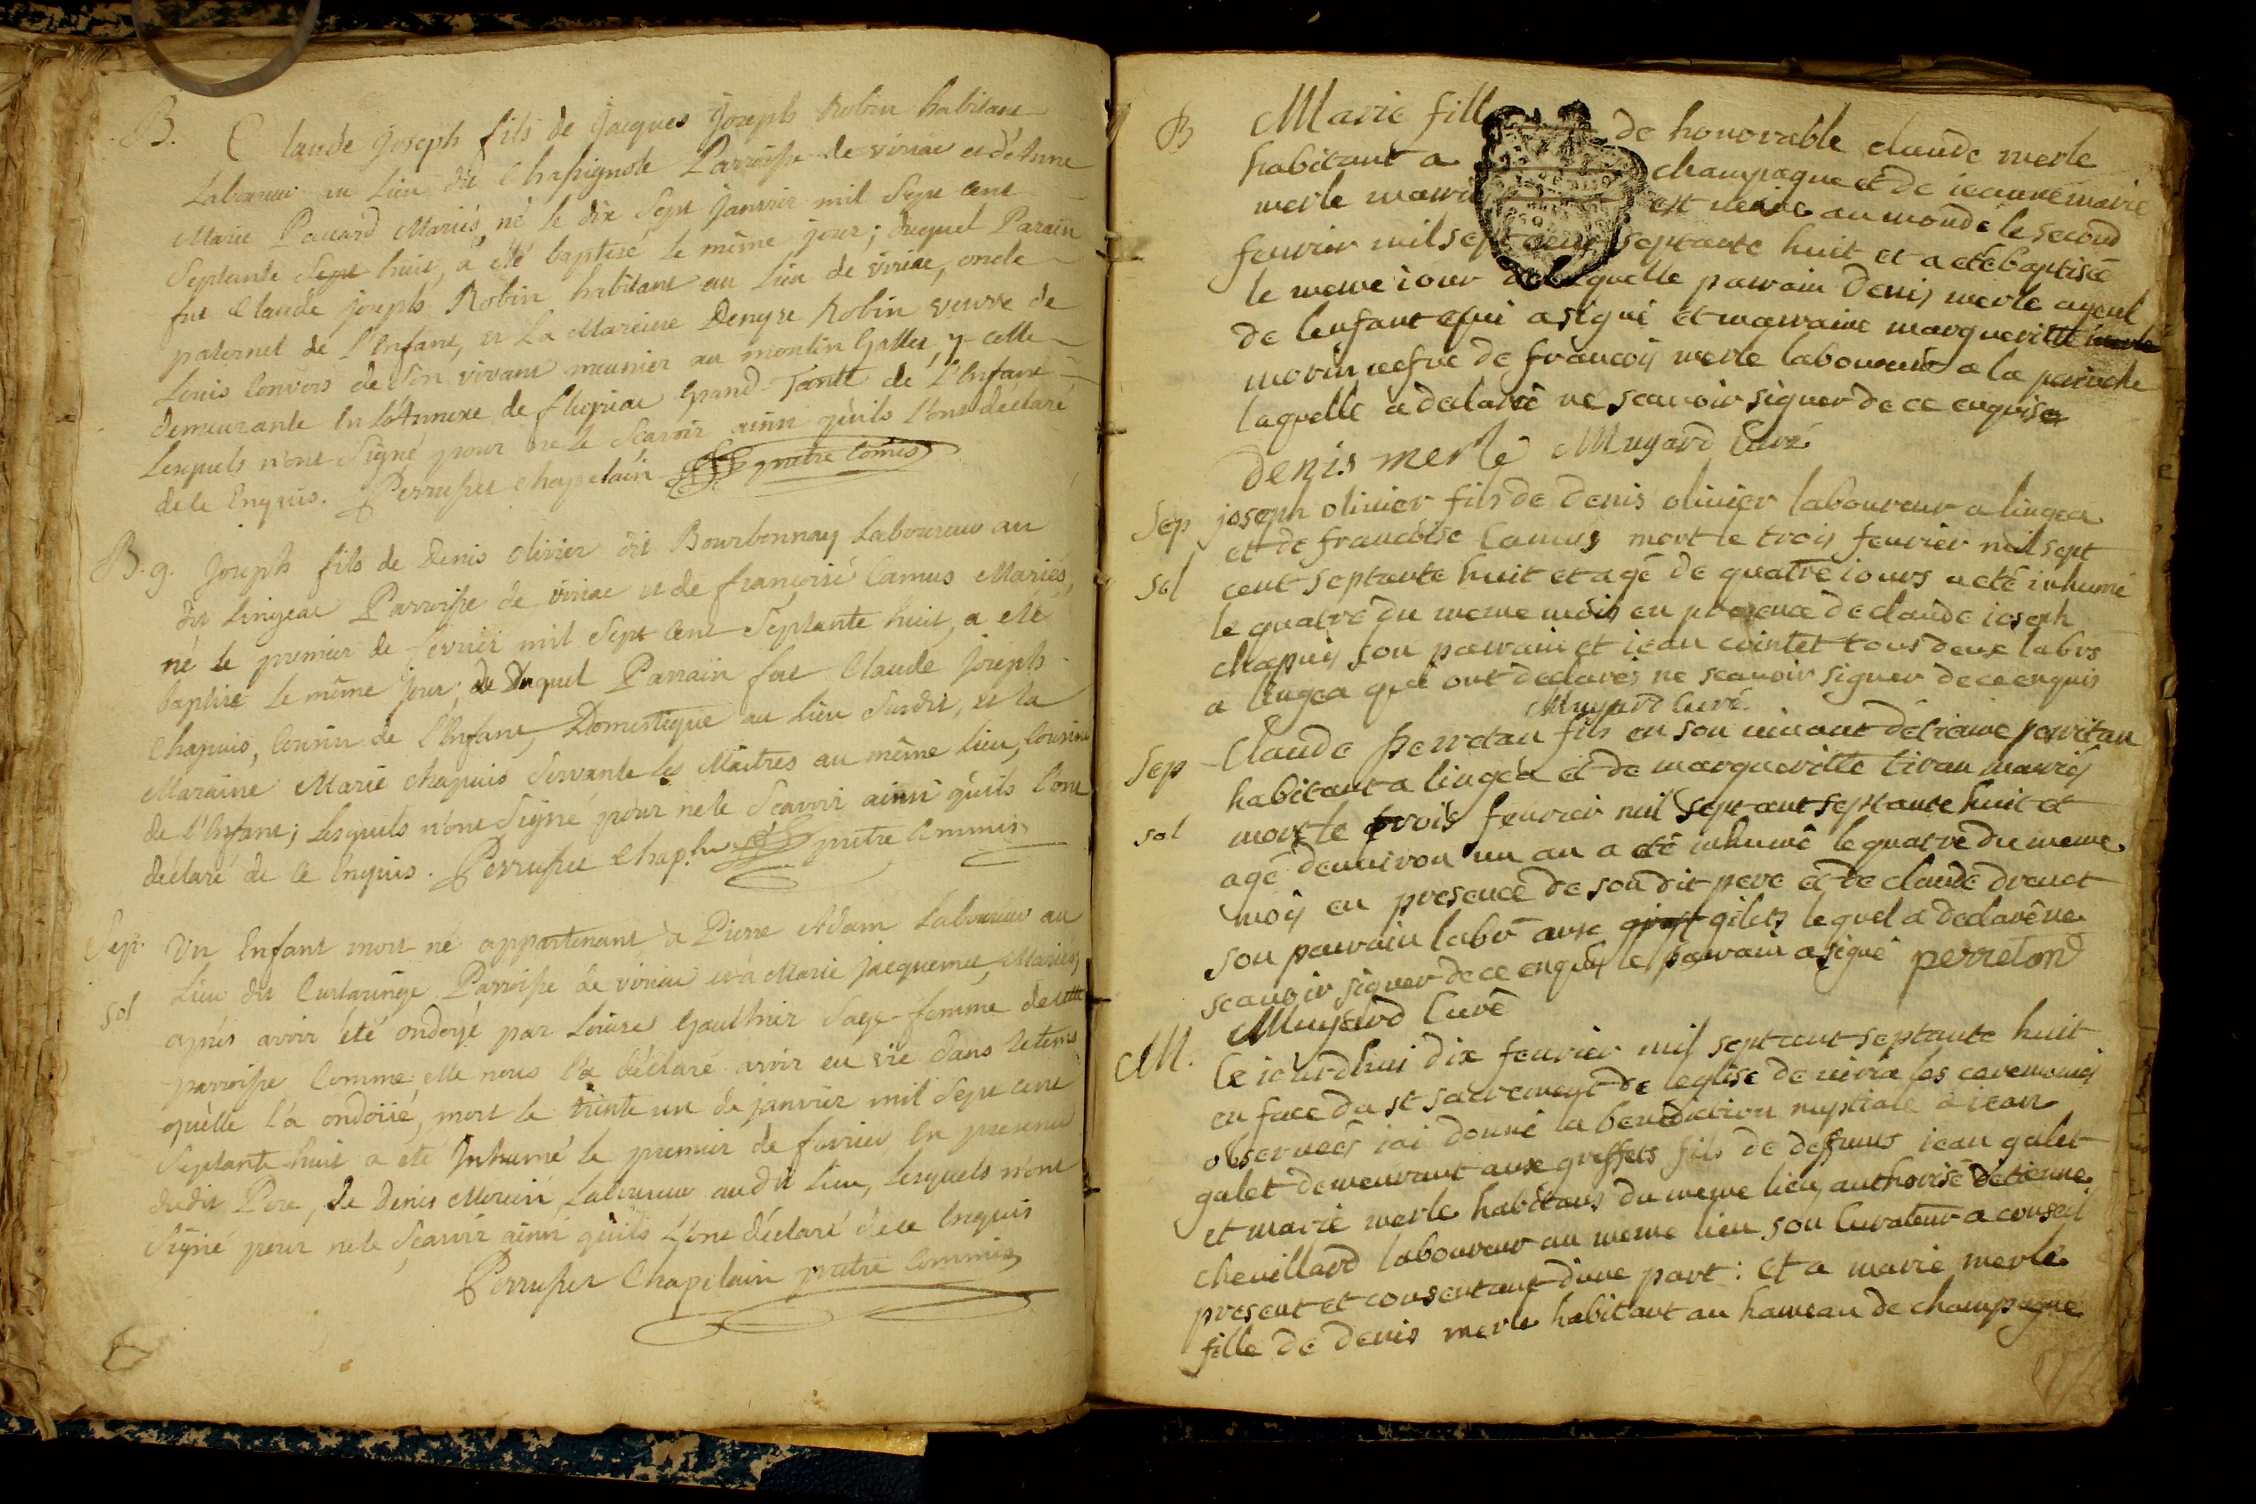 B. Claude Joseph fils de Jacques Joseph Robin habitant
Laboureur au Lieu dit Chassignole Parroisse de viriac et d'Anne
Marie Pauard Mariés, né le dix Sept Janvier mil Sept Cent
Septante Sept huit, a été baptisé le même jour; duquel Parain
fut Claude Joseph Robin habitant au Lieu de viriac, oncle
paternel de l'Enfant, et La Maraine Denyse Robin veuve de
Louis Convers de Son vivant meunier au moulin y cette
demeurante En L'Annexe de Grand-Tante de L'Enfant
Lesquels n'ont Signé pour ne le Scavoir ainsi qu'ils l'ont declaré
de ce Enquis. Perrusset Chapelain pretre Comis
B. g. Joseph fils de Denis olivier dit Bourbonnay Laboureur au
dit Lingeat Parroisse de viriac et de françoise Camus Mariés,
né le premier de fevrier mil Sept Cent Septante huit, a été
baptisé Le même Jour; de Duquel Parrain fut Claude Joseph
Chapuis, Cousin de l'Enfant, Domestique au Lieu Susdit, et la
Maraine Marie Chapuis Servante les Maitres au même Lieu, Cousine
de l'Enfant; Lesquels n'ont Signé pour ne le Scavoir ainsi qu'ils l'ont
déclaré de Ce Enquis. Perrusset Chapelain pretre Commis
Sep. Un Enfant mort né appartenant à Pierre Adam Laboureur au
Lieu dit Curtaringe Parroisse de viriac et à Marie Jacquemet, Mariés,
sol après avoir été ondoyé par Louise Gaulthier Sage-femme de cette
parroisse Comme elle nous l'a déclaré avoir eu vie dans le tems
qu'elle l'a ondoiié, mort le trente un de janvier mil Sept cent
Septante-huit a été Inhumé le premier de fevrier En presence
dudit Pere, de Denis Laboureur audit Lieu, Lesquels n'ont
Signé pour ne le Scavoir ainsi qu'ils L'ont déclaré de ce Enquis
Perrusset Chapelain pretre Commis
B Marie fille de honorable claude merle
habitant a champagne et de ieanne marie
merle mariés est venue au monde le second
fevrier mil sept cent septante huit et a eté baptisée
le meme iour de laquelle parrain Denis merle ayeul
de lenfant qui a signé et marraine marguerite merle
morin vefve de francois merle laboureur a la
laquelle a declaré ne scavoir signer de ce enquise
denis merle Muyard Curé
Sep joseph olivier fils de Denis olivier laboureur a lingea
et de francoise Camus mort le trois fevrier mil sept
sol cent septante huit et agé de quatre iours a eté inhumé
le quatre du meme mois en presence de claude ioseph
chapuis son parrain et iean cointet tous deux labrs
a lingea qui ont declarés ne scavoir signer de ce enquis
Muyard Curé
Sep Claude perretan fils en son vivant detienne perritan
habitant a lingéa et de marguerite tivan mariés
sol mort le trois fevrier mil sept cent septante huit et
agé denviron un an a eté inhumé le quatre du meme
mois en presence de son dit pere et de claude drevet
son parrain labr aux gilets lequel a declaré ne
scavoir signer de ce enquis le parrain a signé perreton
Muyard Curé
M. Ce iourdhui dix fevrier mil sept cent septante huit
en face du st sacrement de leglise de viria les ceremonies
observeés iai donné la benediction nuptiale à iean
galet demeurant aux greffets fils de deffunts iean galet
et marie merle habitans du meme lieu, authorisé detienne
chevillard laboureur au meme lieu son Curateur a conseil
present et consentant dune part: Et a marie merle
fille de denis merle habitant au hameau de champagne